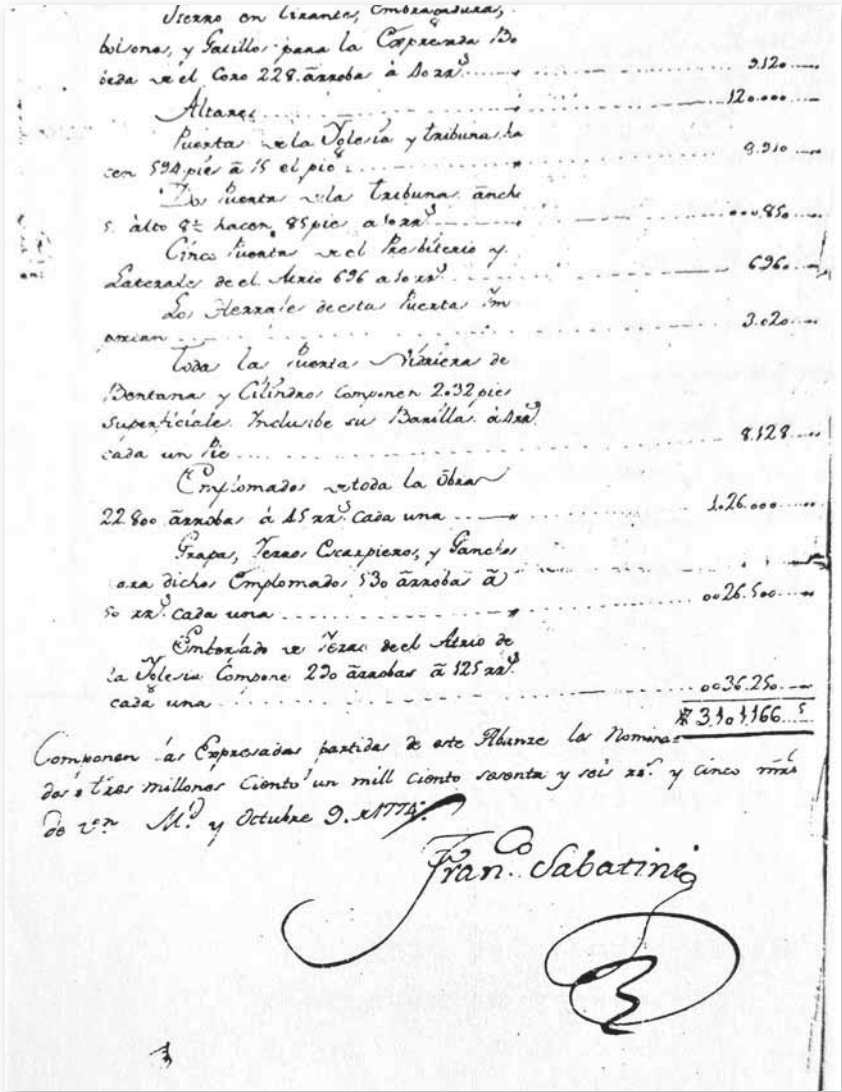 Yerro en tirantes, Embragaduras,
bolsones, y Gatillos para la Expresada Bo
beda de el Coro 228. arrobas à 40 rrs ... 9.120
Altares ... 120.000
Puertas de la Yglesia y tribunas ha
cen 594 pies à 15 el pie ... 8.910
Dos Puertas de la tribuna anch
5. alto 8½ hacen 85 pies a 10 rrs ... 000.850
Cinco Puertas de el Presbiterio y
Laterales de el Atrio 696 a 10 rrs ... 6.960
Los Herrajes de estas Puertas Im
portan ... 3.020
Toda las Puertas Vidrieras de
Bentanas y Cilindros componen 2.032 pies
Superficiales Inclusibe su Barilla à 4 rrs
cada un Pie ... 8.128
Emplomados de toda la Obra
22.800 arrobas à 45 rrs cada una ... 1.26.000
Grapas, Yerros Escarpieros, y Ganchos
para dichos Emplomados 530 arrobas à
50 rrs cada una ... 0026.500
Enborjado de Yerro de el Atrio de
la Yglesia Compone 290 arrobas à 125 rrs
cada una ... 0036.250
3.101.166 5
Componen las Expresadas partidas de este Abanze las Nomina=
das tres millones Ciento un mill ciento sesenta y seis rrs y cinco mrs
de vn Md y Octubre 9. de 1774.
Franco Sabatini